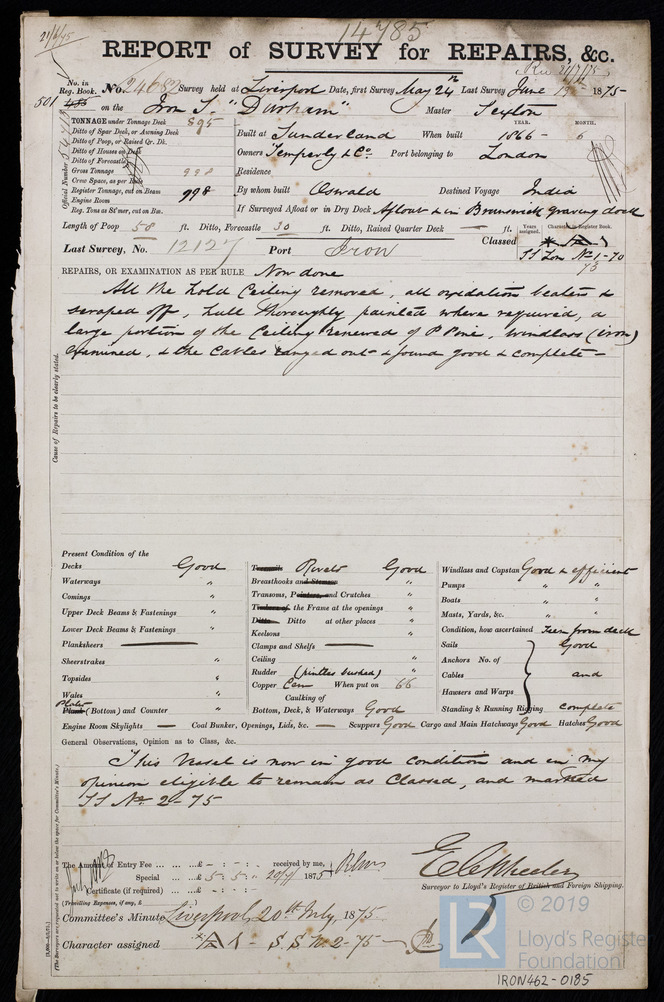 14785
REPORT of SURVEY for REPAIRS, &c.
No. in Reg. Book. No. 24682 Survey held at Liverpool Date, first Survey May 24th Last Survey June 1875
501 485 on the Iron S. "Durham" Master Sexton
TONNAGE under Tonnage Deck 895
Ditto of Spar Deck, or Awning Deck
Ditto of Poop, or Raised Qr. Dk.
Ditto of Houses on Deck
Ditto of Forecastle
Gross Tonnage 998
Crew Space, as per Rule
Register Tonnage, cut on Beam 998
Engine Room
Reg. Tons as St'mer, cut on Bm.
Official Number
YEAR. MONTH.
Built at Sunderland When built 1866 - 6
Owners Temperly & Co. Port belonging to London
Residence
By whom built Oswald Destined Voyage India
If Surveyed Afloat or in Dry Dock Afloat & in Brunswick graving dock
Length of Poop 58 ft. Ditto, Forecastle 30 ft. Ditto, Raised Quarter Deck — ft.
Years assigned. Character in Register Book.
Classed
SS Lon No 1-70
Last Survey, No. 12127 Port Iron
REPAIRS, OR EXAMINATION AS PER RULE Now done
All the hold Ceiling removed, all oxidation beaten &
scraped off, hull thoroughly painted where required, a
large portion of the Ceiling renewed of P Pine, windlass (iron)
examined, & the Cables ranged out & found good & complete –
Cause of Repairs to be clearly stated.
Present Condition of the
Decks Good
Waterways "
Comings "
Upper Deck Beams & Fastenings "
Lower Deck Beams & Fastenings "
Planksheers —
Sheerstrakes "
Topsides "
Wales "
Plates
Plank (Bottom) and Counter "
Treenails Rivets Good
Breasthooks and Stemson "
Transoms, Pointers, and Crutches "
Timbers of the Frame at the openings "
Ditto Ditto at other places "
Keelsons "
Clamps and Shelfs —
Ceiling "
Rudder (pintles bushed) "
Copper Cem When put on 66
Caulking of
Bottom, Deck, & Waterways Good
Windlass and Capstan Good & efficient
Pumps " "
Boats " "
Masts, Yards, &c. " "
Condition, how ascertained Seen from deck
Sails Good
Anchors No. of
Cables and
Hawsers and Warps
Standing & Running Rigging complete
Engine Room Skylights — Coal Bunker, Openings, Lids, &c. — Scuppers Good Cargo and Main Hatchways Good Hatches Good
General Observations, Opinion as to Class, &c.
This Vessel is now in good condition and in my
opinion eligible to remain as Classed, and marked
SS No 2-75
The Amount of Entry Fee ... ... ... £ - : - : - received by me,
Special ... ... £ 5 : 5 : " 20/7 1875
Certificate (if required) ... - : - : -
(Travelling Expenses, if any, £ )
Surveyor to Lloyd's Register of British and Foreign Shipping.
Committee's Minute Liverpool, 20th July, 1875
Character assigned A1 - S.S. No 2-75
© 2019
LR
Lloyd's Register
Foundation
IRON462-0185